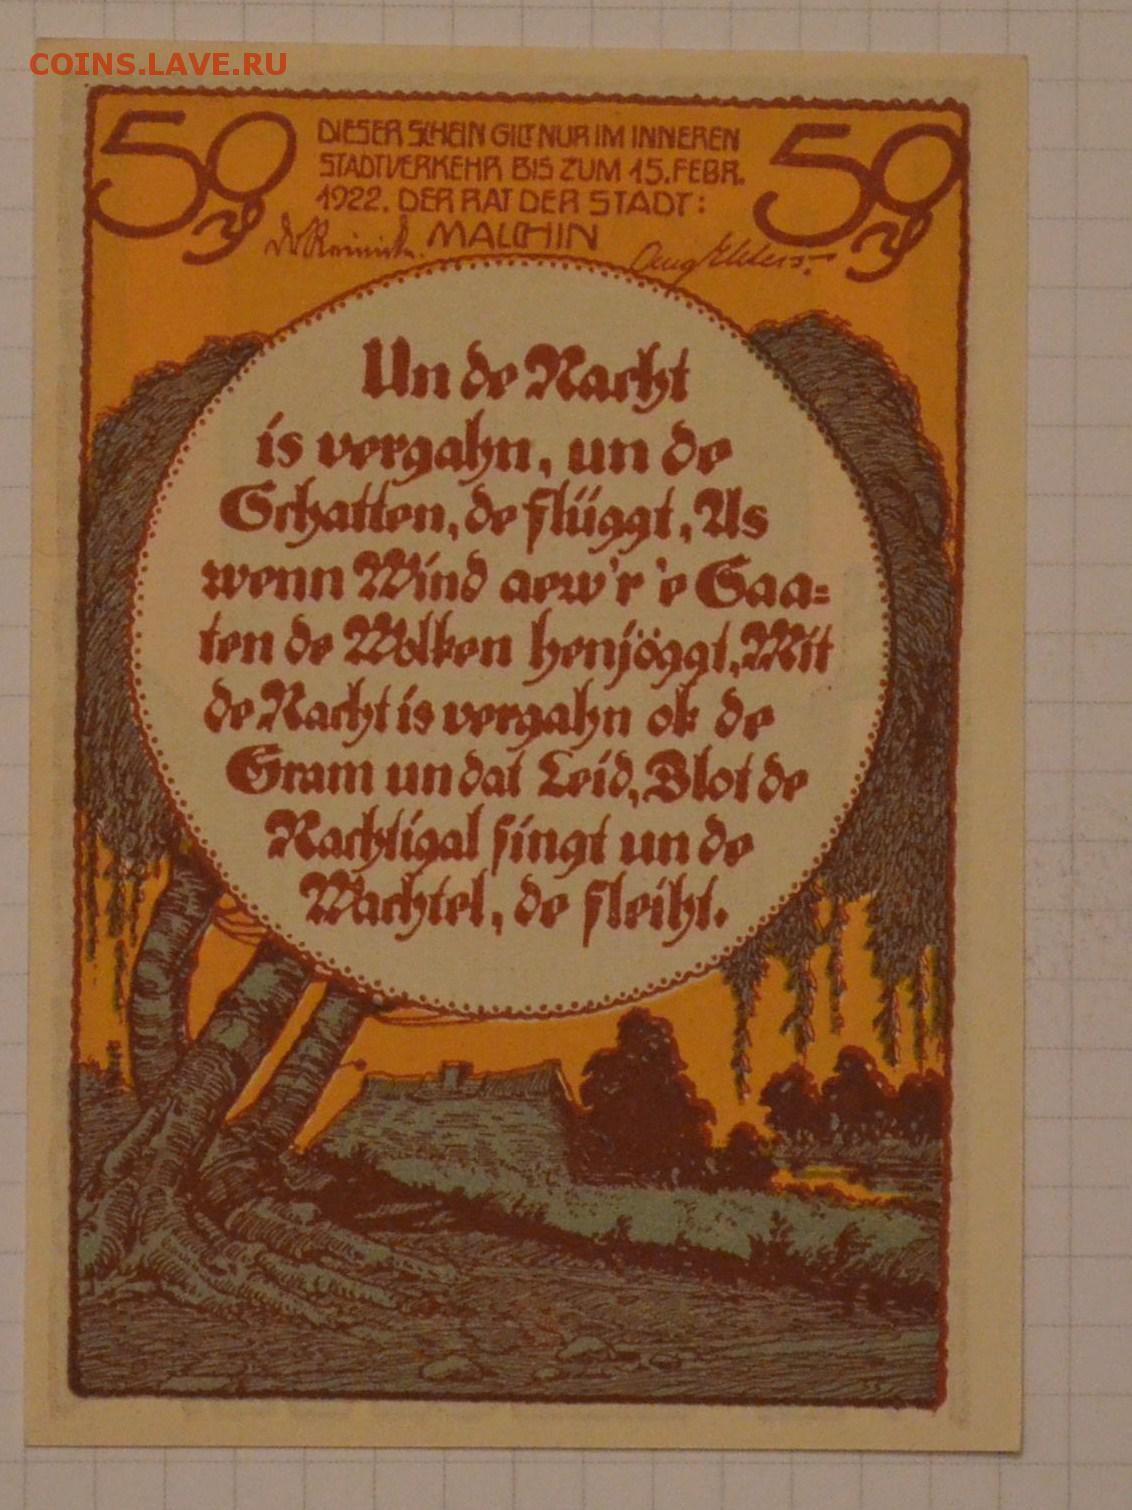 COINS.LAVE.RU
50 ₰
DIESER SCHEIN GILT NUR IM INNEREN
STADTVERKEHR BIS ZUM 15. FEBR.
1922. DER RAT DER STADT:
MALCHIN
50 ₰
Dr Reinick.
Aug Ehlers.
Un de Nacht
is vergahn, un de
Schatten, de flüggt, As
wenn Wind aew'r 'e Saa=
ten de Wolken henjöggt, Mit
de Nacht is vergahn ok de
Gram un dat Leid, Blot de
Nachtigal singt un de
Wachtel, de fleiht.